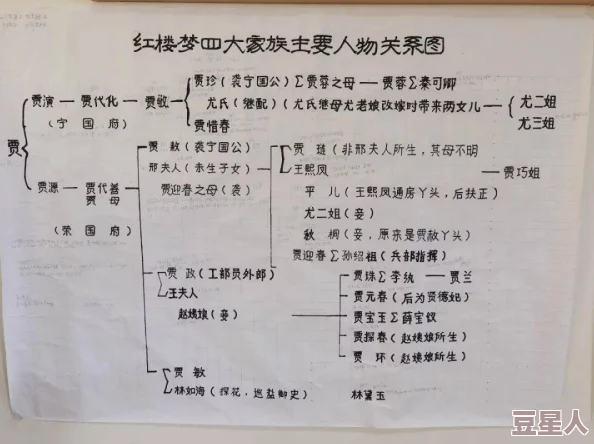 红楼梦四大家族主要人物关系图
贾珍(袭宁国公)∑贾蓉之母——贾蓉∑秦可卿
贾演—贾代化—贾敬
尤氏(继配)(尤氏继母尤老娘改嫁时带来两女儿
尤二姐
尤三姐
(宁国府)
贾惜春
贾
贾赦(袭宁国公)
贾琏(非邢夫人所生,其母不明
邢夫人(赤生子女)
王熙凤
贾巧姐
贾源—贾代善
贾母
贾迎春之母(袭)
平儿(王熙凤通房丫头,后扶正)
尤二姐(妾)
(荣国府)
秋桐(妾,原来是贾赦丫头)
贾迎春∑孙绍祖(兵部指挥)
贾政(工部员外郎)
贾珠∑李纨—贾兰
王夫人
贾元春(后为贤德妃)
赵姨娘(妾)
贾宝玉∑薛宝钗
贾探春(赵姨娘所生)
贾环(赵姨娘所生)
贾敏
林如海(探花,巡盐御史)
林黛玉
豆星人